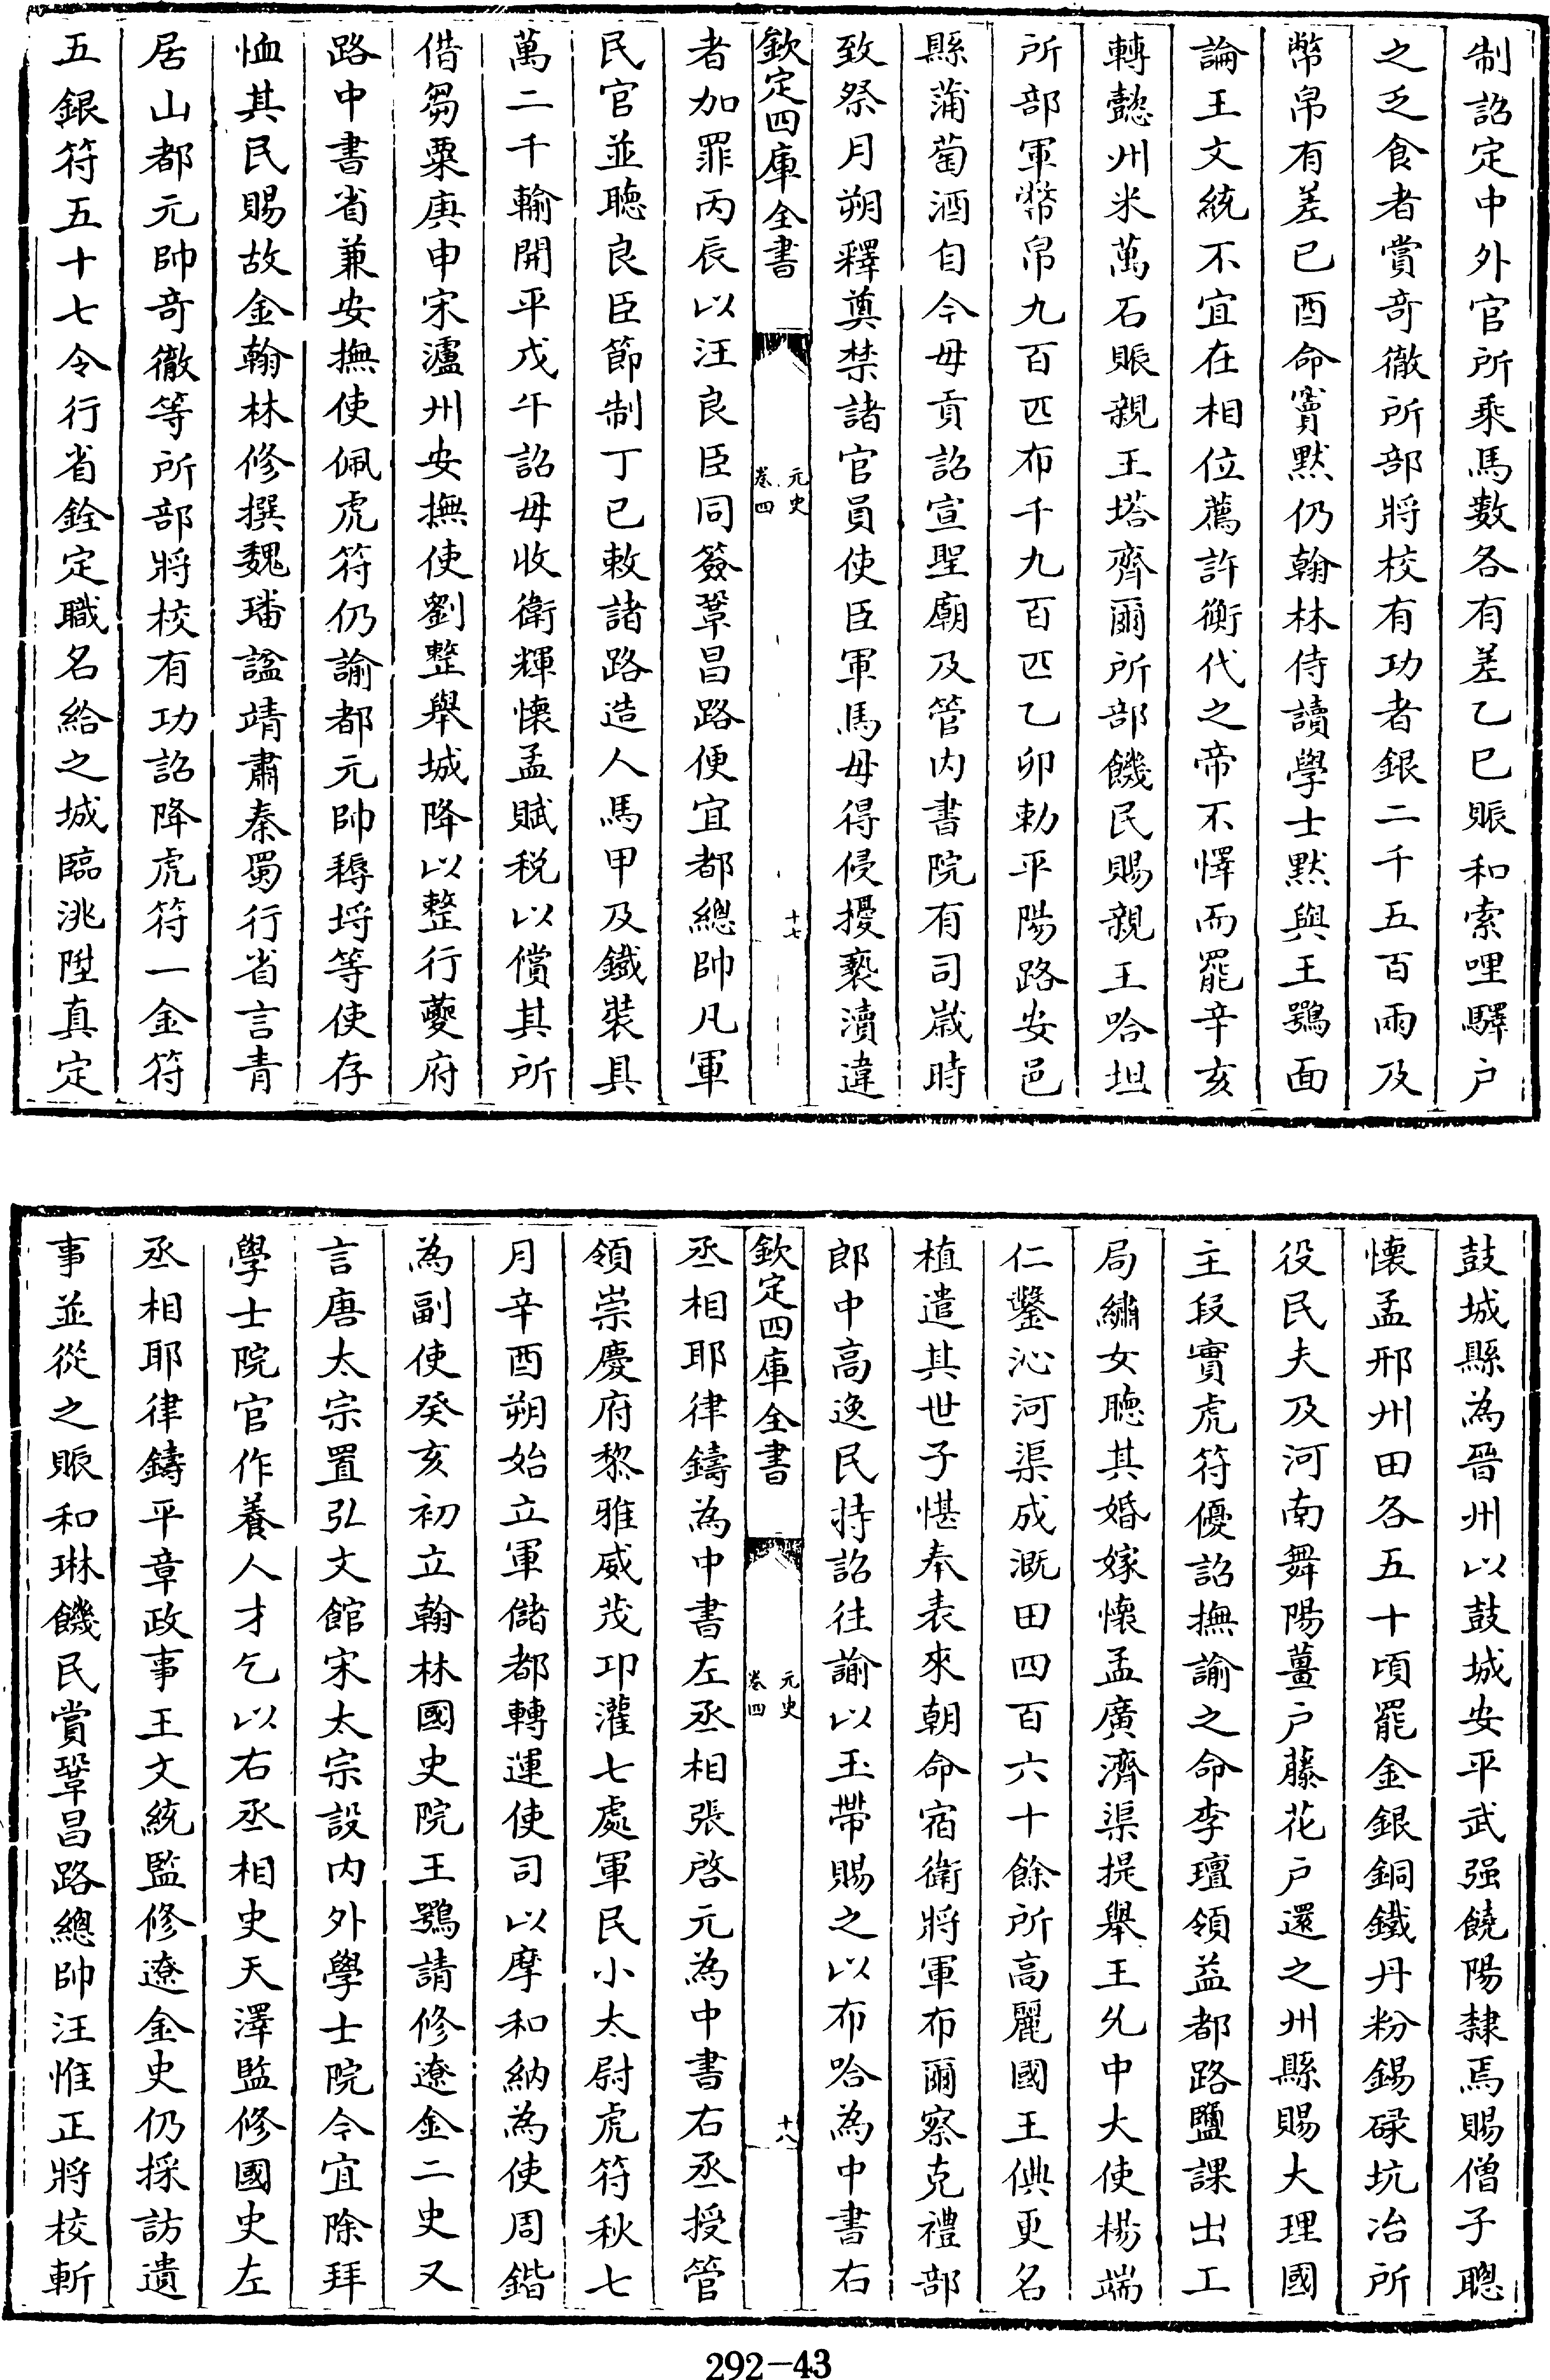 制詔定中外官所乘馬數各有差乙巳賑和索哩驛户
之乏食者賞奇徹所部將校有功者銀二千五百兩及
幣帛有差已酉命竇黙仍翰林侍讀學士黙與王鶚面
論王文統不宜在相位薦許衡代之帝不懌而罷辛亥
轉懿州米萬石賑親王塔齊爾所部饑民賜親王哈坦
所部軍幣帛九百匹布千九百匹乙卯勅平陽路安邑
縣蒲萄酒自今毋貢詔宣聖廟及管内書院有司嵗時
致祭月朔釋奠禁諸官員使臣軍馬毋得侵擾褻瀆違
欽定四庫全書
元史
卷四
十七
者加罪丙辰以汪良臣同簽鞏昌路便宜都總帥凡軍
民官並聽良臣節制丁巳敕諸路造人馬甲及鐡裝具
萬二千輸開平戊午詔毋收衛輝懷孟賦税以償其所
借芻粟庚申宋瀘州安撫使劉整舉城降以整行夔府
路中書省兼安撫使佩虎符仍諭都元帥耨埒等使存
恤其民賜故金翰林修撰魏璠諡靖肅秦蜀行省言青
居山都元帥奇徹等所部將校有功詔降虎符一金符
五銀符五十七令行省銓定職名給之城臨洮陞真定
鼓城縣為晉州以鼓城安平武强饒陽隸焉賜僧子聰
懷孟邢州田各五十頃罷金銀銅鐵丹粉錫碌坑冶所
役民夫及河南舞陽薑户藤花户還之州縣賜大理國
主段實虎符優詔撫諭之命李璮領益都路鹽課出工
局繡女聽其婚嫁懷孟廣濟渠提舉王允中大使楊端
仁鑿沁河渠成溉田四百六十餘所高麗國王倎更名
植遣其世子愖奉表來朝命宿衛將軍布爾察克禮部
郎中高逸民持詔往諭以玉帶賜之以布哈為中書右
欽定四庫全書
元史
卷四
十八
丞相耶律鑄為中書左丞相張啓元為中書右丞授管
領崇慶府黎雅威茂邛灌七處軍民小太尉虎符秋七
月辛酉朔始立軍儲都轉運使司以摩和納為使周鍇
為副使癸亥初立翰林國史院王鶚請修遼金二史又
言唐太宗置弘文館宋太宗設内外學士院令宜除拜
學士院官作養人才乞以右丞相史天澤監修國史左
丞相耶律鑄平章政事王文統監修遼金史仍採訪遺
事並從之賑和琳饑民賞鞏昌路總帥汪惟正將校斬
292-43